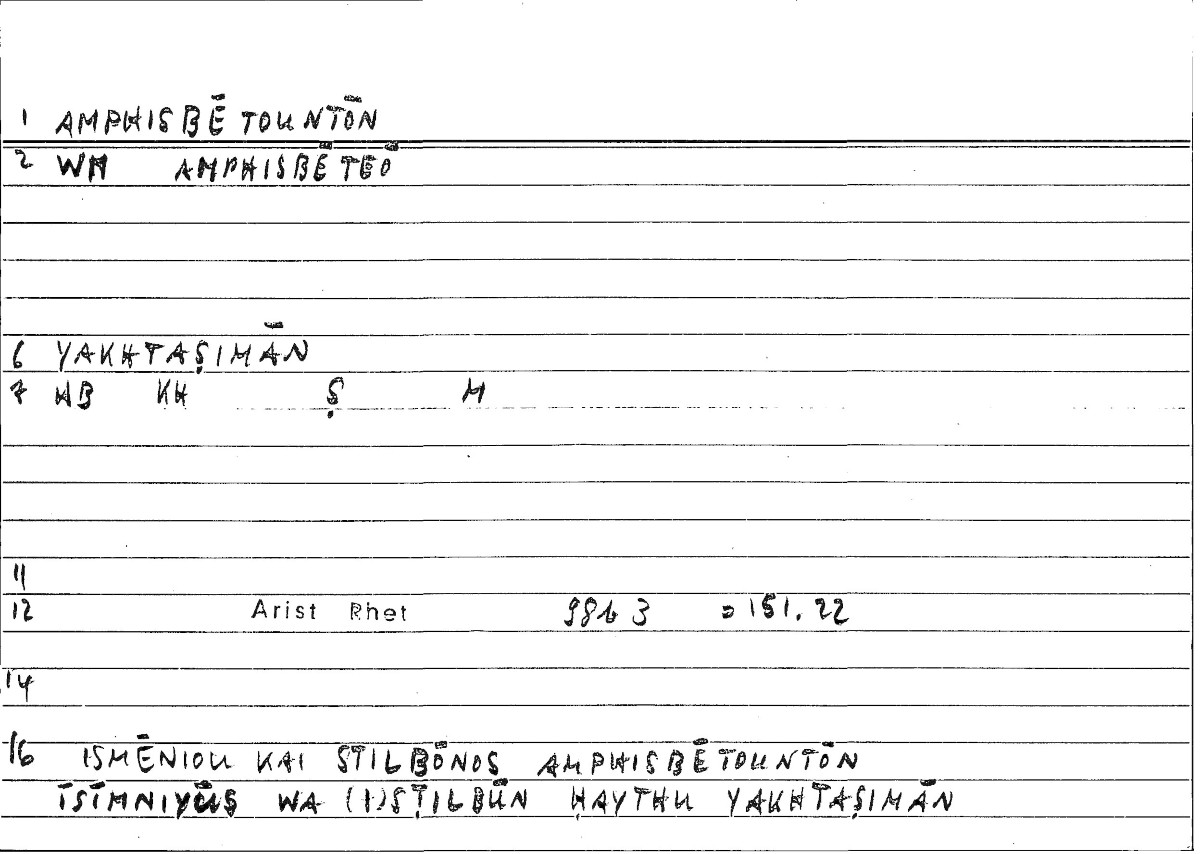 1 AMPHISBĒTOUNTŌN
2 WM AMPHISBĒTEŌ
6 YAKHTAṢIMĀN
7 HB KH Ṣ M
11
12 Arist Rhet 98b 3 = 151.22
14
16 ISMĒNIOU KAI STILBŌNOS AMPHISBĒTOUNTŌN
ĪSĪMNIYŪS WA (I)SṬILBŪN ḤAYTHU YAKHTAṢIMĀN